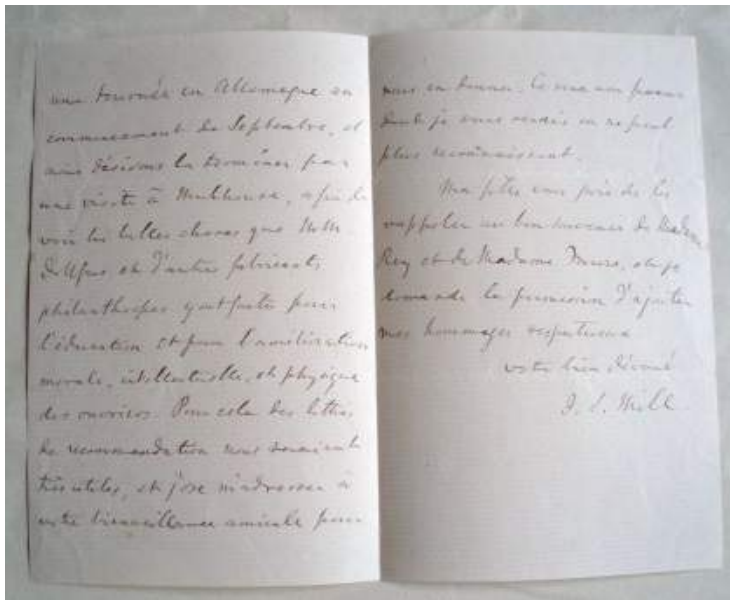 une tournée en Allemagne au
commencement de Septembre, et
nous désirons la terminer par
une visite à Mulhouse, afin de
voir les belles choses que MM.
Dollfus et d'autres fabricants
philanthropes y ont faites pour
l'éducation et pour l'amélioration
morale, intellectuelle, et physique
des ouvriers. Pour cela des lettres
de recommandation nous seraient
très utiles, et j'ose m'adresser à
votre bienveillance amicale pour
nous en donner. Ce sera une faveur
dont je vous serais on ne peut
plus reconnaissant.
Ma fille vous prie de la
rappeler au bon souvenir de Madame
Rey et de Madame, et je
demande la permission d'ajouter
mes hommages respectueux
votre bien dévoué
J. S. Mill